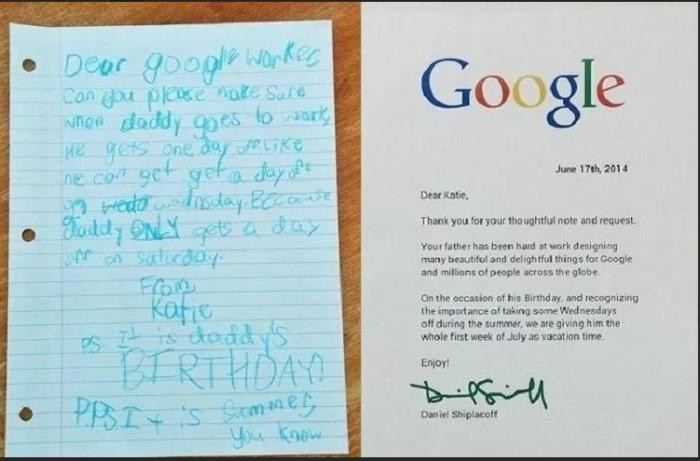 Dear google worker,
Can you please make sure
when daddy goes to work,
He gets one day off. Like
he can get get a day off
on wedo wednsday. Because
daddy ONLY gets a day
off on saturday.
From,
Katie
P.S. It is daddy's
BIRTHDAY!
P.P.S. It is summer,
you know.
Google
June 17th, 2014
Dear Katie,
Thank you for your thoughtful note and request.
Your father has been hard at work designing
many beautiful and delightful things for Google
and millions of people across the globe.
On the occasion of his Birthday, and recognizing
the importance of taking some Wednesdays
off during the summer, we are giving him the
whole first week of July as vacation time.
Enjoy!
Daniel Shiplacoff